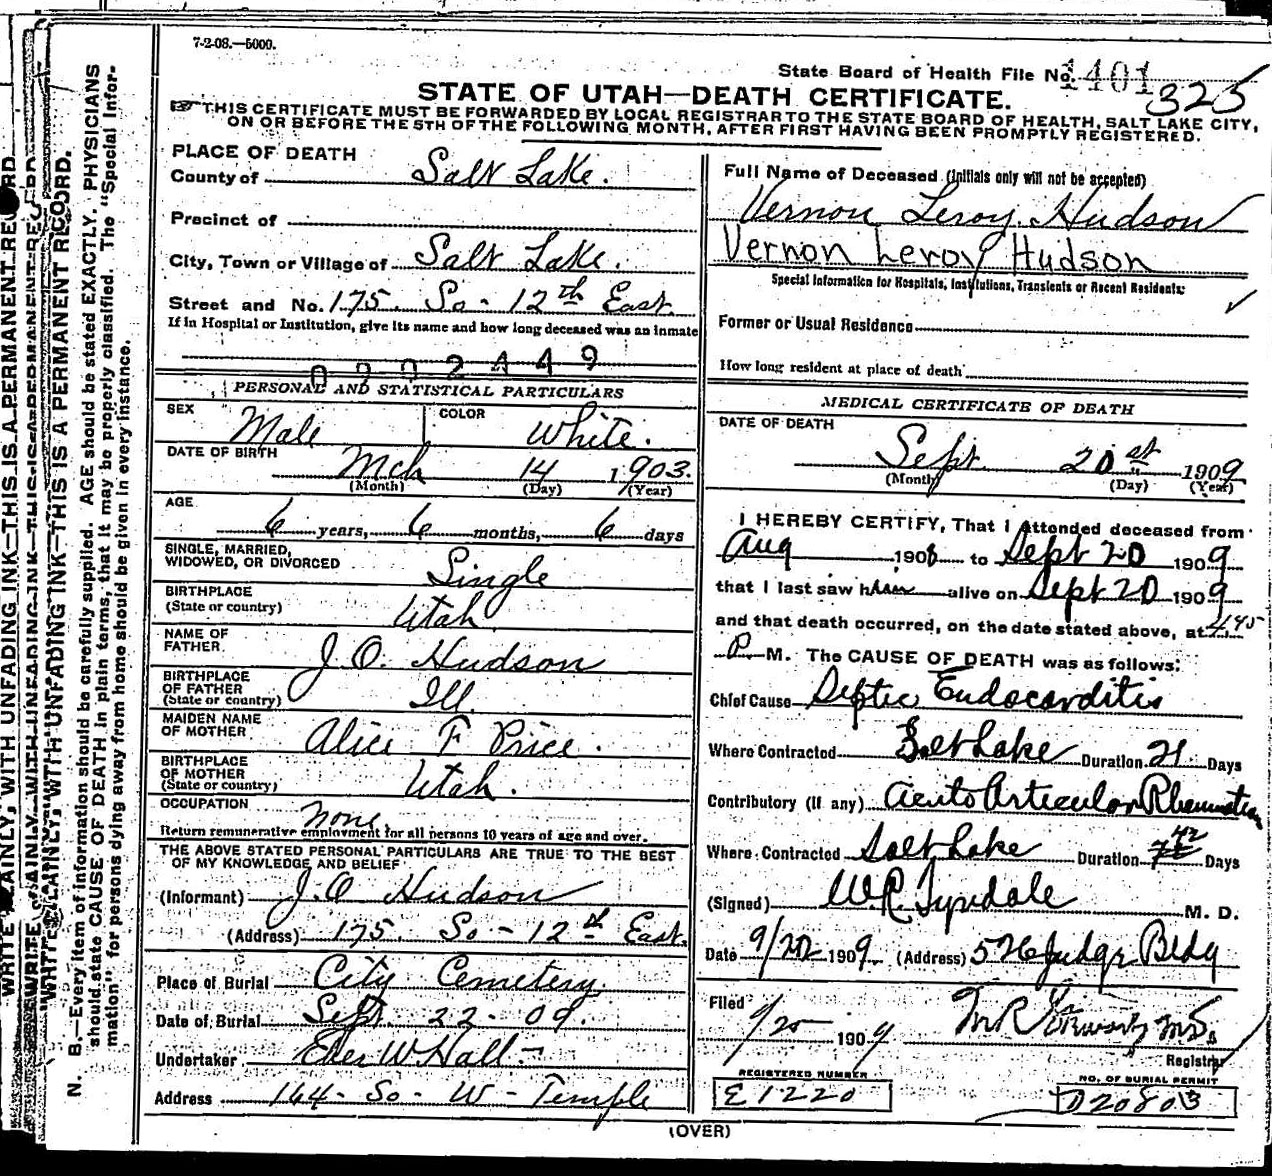 7-2-08.—5000.
State Board of Health File No. 1401 325
STATE OF UTAH—DEATH CERTIFICATE.
THIS CERTIFICATE MUST BE FORWARDED BY LOCAL REGISTRAR TO THE STATE BOARD OF HEALTH, SALT LAKE CITY,
ON OR BEFORE THE 5TH OF THE FOLLOWING MONTH, AFTER FIRST HAVING BEEN PROMPTLY REGISTERED.
PLACE OF DEATH
County of Salt Lake.
Precinct of
City, Town or Village of Salt Lake.
Street and No. 175. So- 12th East.
If in Hospital or Institution, give its name and how long deceased was an inmate
0202449
PERSONAL AND STATISTICAL PARTICULARS
SEX Male COLOR White.
DATE OF BIRTH Mch 14 1903.
(Month) (Day) (Year)
AGE
6 years, 6 months, 6 days
SINGLE, MARRIED,
WIDOWED, OR DIVORCED Single
BIRTHPLACE
(State or country) Utah
NAME OF
FATHER J. O. Hudson
BIRTHPLACE
OF FATHER
(State or country) Ill.
MAIDEN NAME
OF MOTHER Alice F Price.
BIRTHPLACE
OF MOTHER
(State or country) Utah.
OCCUPATION none
Return remunerative employment for all persons 10 years of age and over.
THE ABOVE STATED PERSONAL PARTICULARS ARE TRUE TO THE BEST
OF MY KNOWLEDGE AND BELIEF
(Informant) J. O Hudson
(Address) 175. So- 12th East.
Place of Burial City Cemetery.
Date of Burial Sept. 22-09.
Undertaker Eber W Hall
Address 164- So- W- Temple
Full Name of Deceased (Initials only will not be accepted)
Vernon Leroy Hudson
Vernon Leroy Hudson
Special Information for Hospitals, Institutions, Transients or Recent Residents:
Former or Usual Residence
How long resident at place of death
MEDICAL CERTIFICATE OF DEATH
DATE OF DEATH
Sept. 20st 1909
(Month) (Day) (Year)
I HEREBY CERTIFY, That I attended deceased from
Aug 1908 to Sept 20 1909
that I last saw him alive on Sept 20 1909
and that death occurred, on the date stated above, at 445
P. M. The CAUSE OF DEATH was as follows:
Chief Cause Septic Endocarditis
Where Contracted Salt Lake Duration 21 Days
Contributory (if any) Acute Articular Rheumatism
Where Contracted Salt Lake Duration 42 Days
(Signed) W.R. Tyndale M. D.
Date 9/20 1909 (Address) 526 Judge Bldg
Filed 9/20 1909
Registrar
REGISTERED NUMBER
E1220
NO. OF BURIAL PERMIT
D20803
(OVER)
WRITE PLAINLY, WITH UNFADING INK—THIS IS A PERMANENT RECORD.
N. B.—Every item of information should be carefully supplied. AGE should be stated EXACTLY. PHYSICIANS
should state CAUSE OF DEATH in plain terms, that it may be properly classified. The "Special Infor-
mation" for persons dying away from home should be given in every instance.